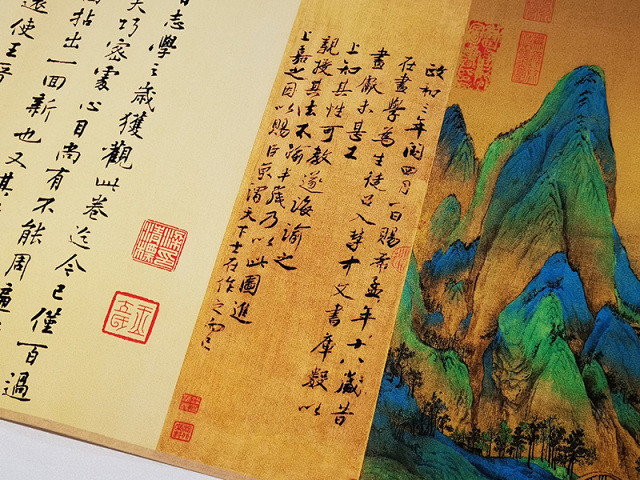 政和三年閏四月一日賜希孟年十八歲昔
在畫學為生徒召入禁中文書庫數以
畫獻未甚工
上知其性可教遂誨諭之
親授其法不踰半歲乃以此圖進
上嘉之因以賜臣京謂天下士在作之而已
志學之歲獲觀此卷迄今已僅百過
天巧密處心目尚有不能周
拈出一回新也又其
遠使王晉